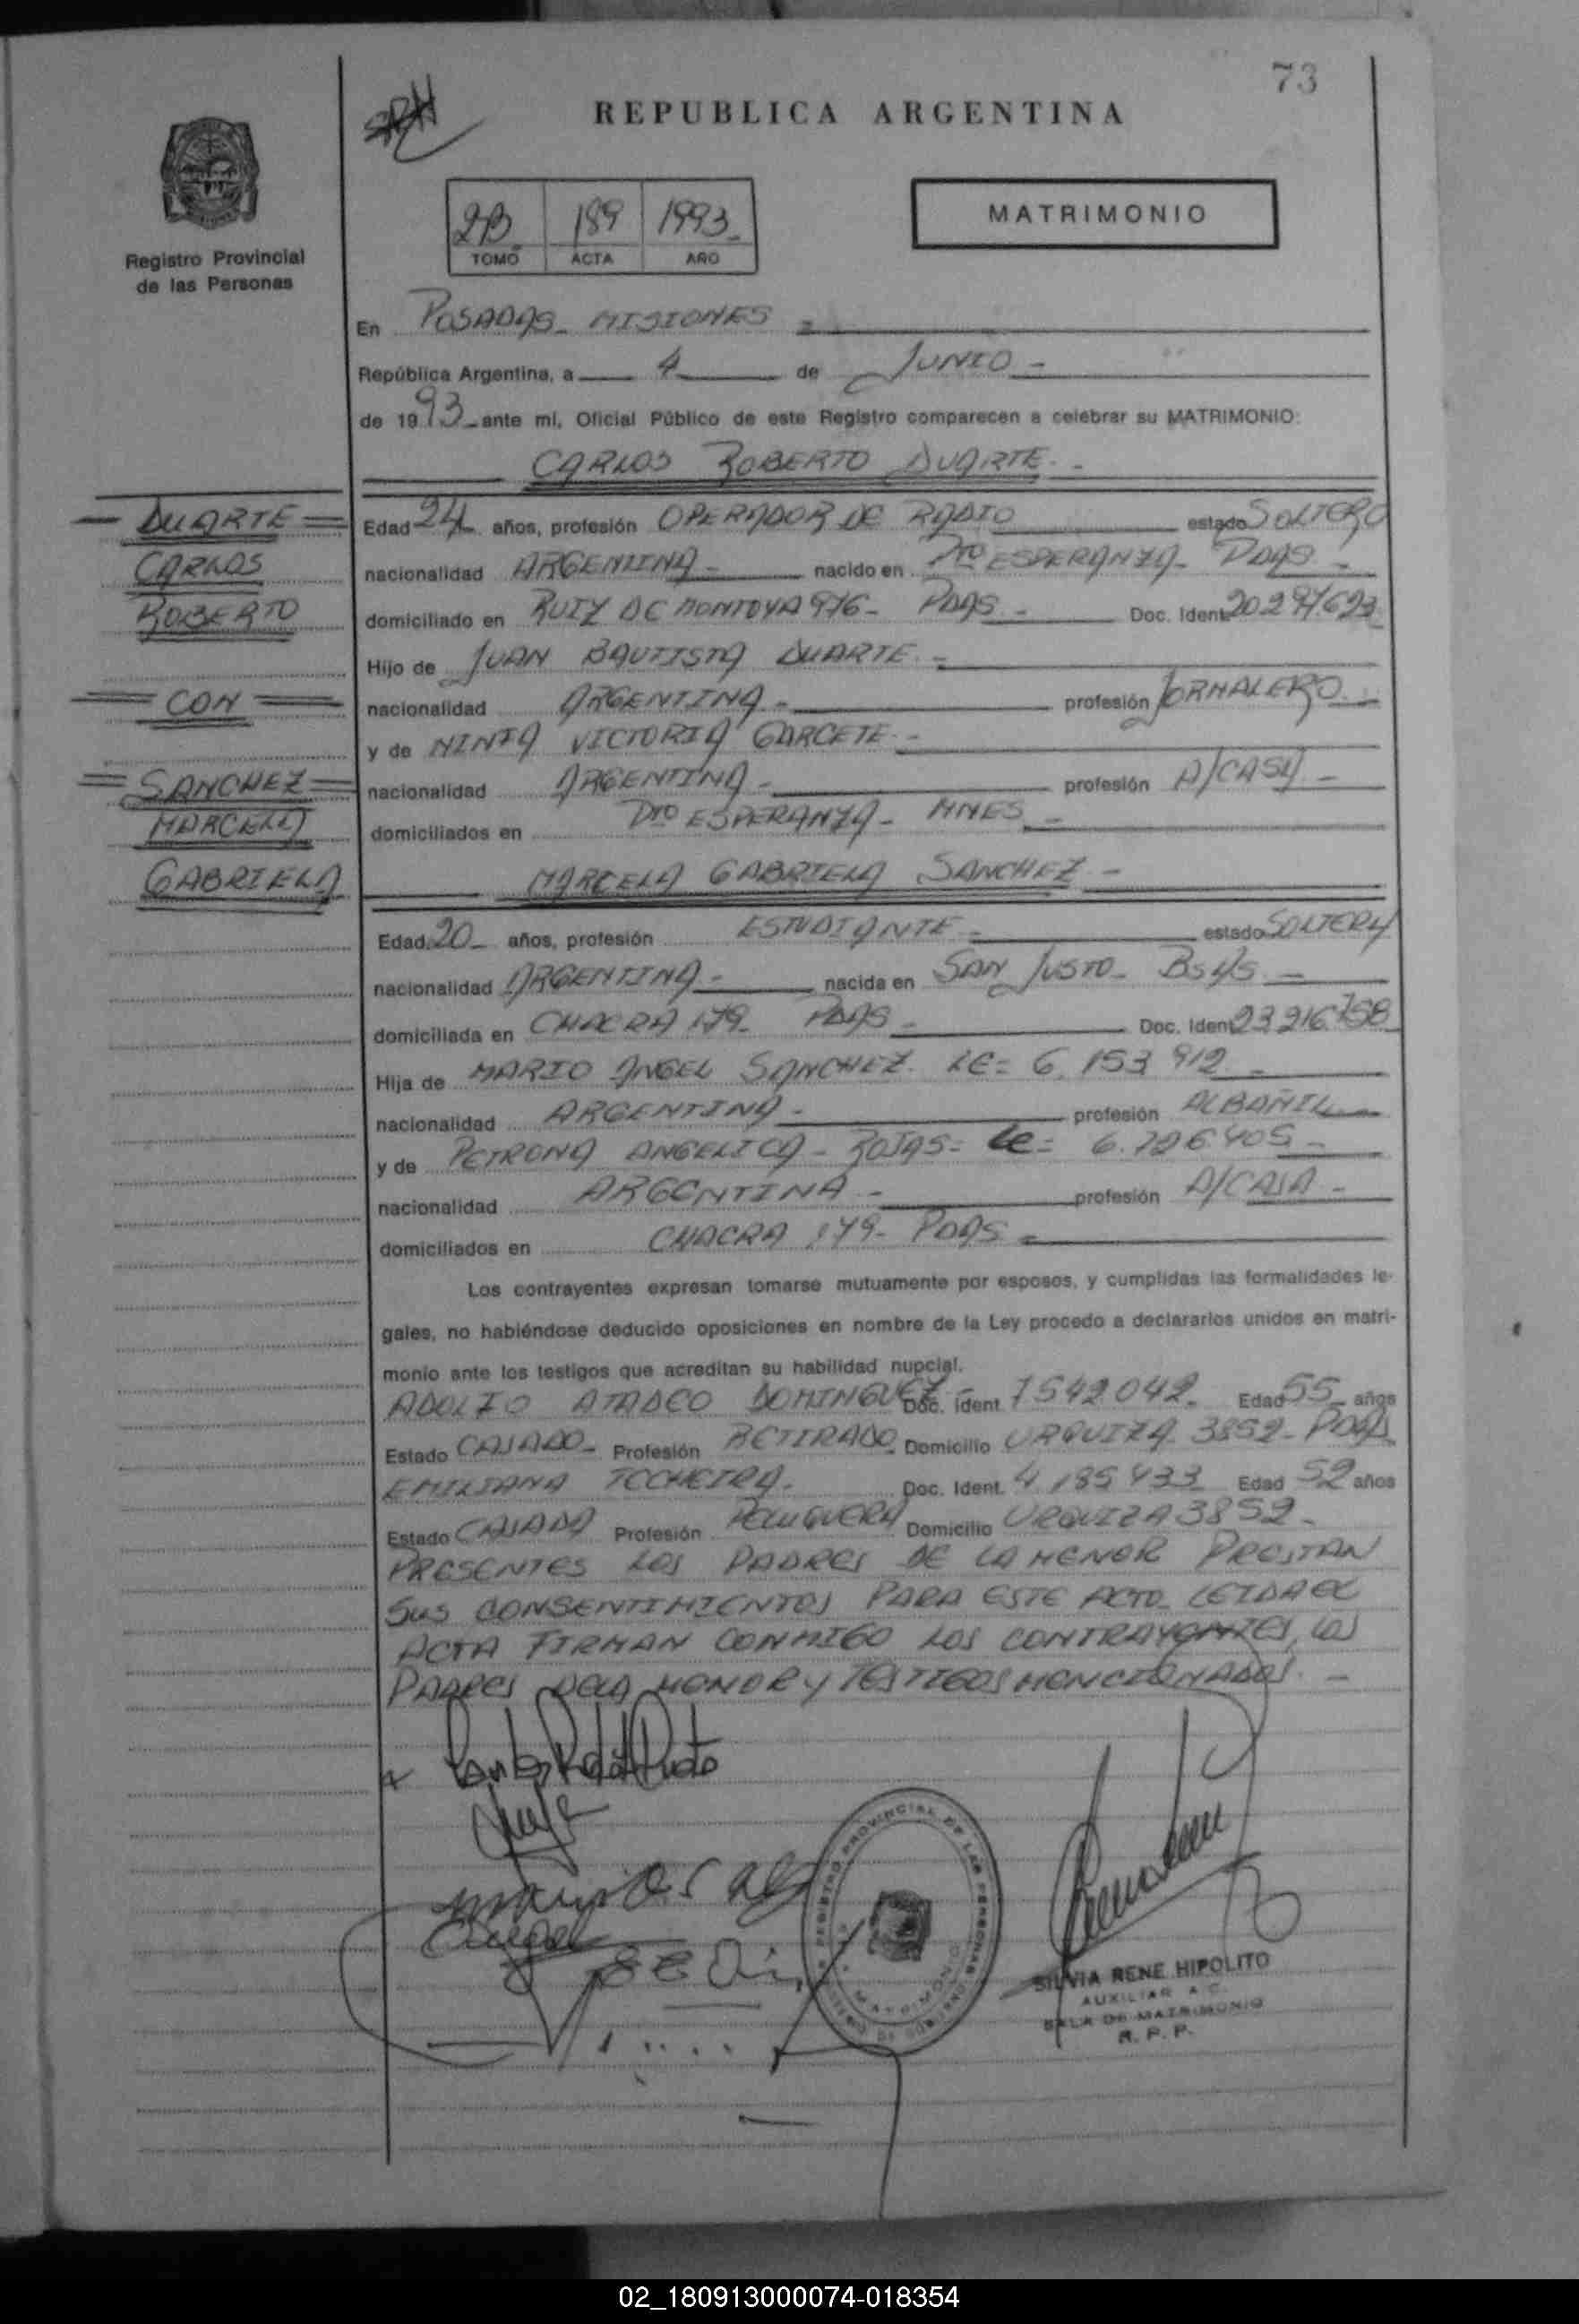 73
REPUBLICA ARGENTINA
Registro Provincial
de las Personas
2B 189 1993
TOMO ACTA AÑO
MATRIMONIO
En POSADAS - MISIONES
República Argentina, a 4 de JUNIO -
de 1993 ante mi, Oficial Público de este Registro comparecen a celebrar su MATRIMONIO:
CARLOS ROBERTO DUARTE -
DUARTE
CARLOS
ROBERTO
CON
SANCHEZ
MARCELA
GABRIELA
Edad 24 años, profesión OPERADOR DE RADIO estado SOLTERO
nacionalidad ARGENTINA - nacido en Pto ESPERANZA - PDAS -
domiciliado en RUIZ DE MONTOYA 976 - PDAS - Doc. Ident.
Hijo de JUAN BAUTISTA DUARTE -
nacionalidad ARGENTINA - profesión JORNALERO -
y de NINFA VICTORIA GARCETE -
nacionalidad ARGENTINA - profesión A/CASA -
domiciliados en Pto ESPERANZA - MNES -
MARCELA GABRIELA SANCHEZ -
Edad 20 - años, profesión ESTUDIANTE - estado SOLTERA
nacionalidad ARGENTINA - nacida en SAN JUSTO - BsAs -
domiciliada en CHACRA 179 - PDAS - Doc. Ident. 23 216 758
Hija de MARIO ANGEL SANCHEZ. LE = 6.153 912 -
nacionalidad ARGENTINA - profesión ALBAÑIL
y de PETRONA ANGELICA - ROJAS = LE = 6.726405 -
nacionalidad ARGENTINA - profesión A/CASA -
domiciliados en CHACRA 179 - PDAS -
Los contrayentes expresan tomarse mutuamente por esposos, y cumplidas las formalidades le-
gales, no habiéndose deducido oposiciones en nombre de la Ley procedo a declararlos unidos en matri-
monio ante los testigos que acreditan su habilidad nupcial.
ADOLFO DOMINGUEZ - Doc. Ident. 7542042 - Edad 55 años
Estado CASADO - Profesión RETIRADO Domicilio URQUIZA 3852 - PDAS
EMILIANA TECHEIRA - Doc. Ident. 4.185433 Edad 52 años
Estado CASADA Profesión PELUQUERA Domicilio URQUIZA 3852 -
PRESENTES LOS PADRES DE LA MENOR PRESTAN
SUS CONSENTIMIENTOS PARA ESTE ACTO. LEIDA EL
ACTA FIRMAN CONMIGO LOS CONTRAYENTES, LOS
PADRES DE LA MENOR Y TESTIGOS MENCIONADOS. -
REGISTRO PROVINCIAL DE LAS PERSONAS
MATRIMONIO
SILVIA RENE HIPOLITO
AUXILIAR A C.
SALA DE MATRIMONIO
R. P. P.
02_180913000074-018354